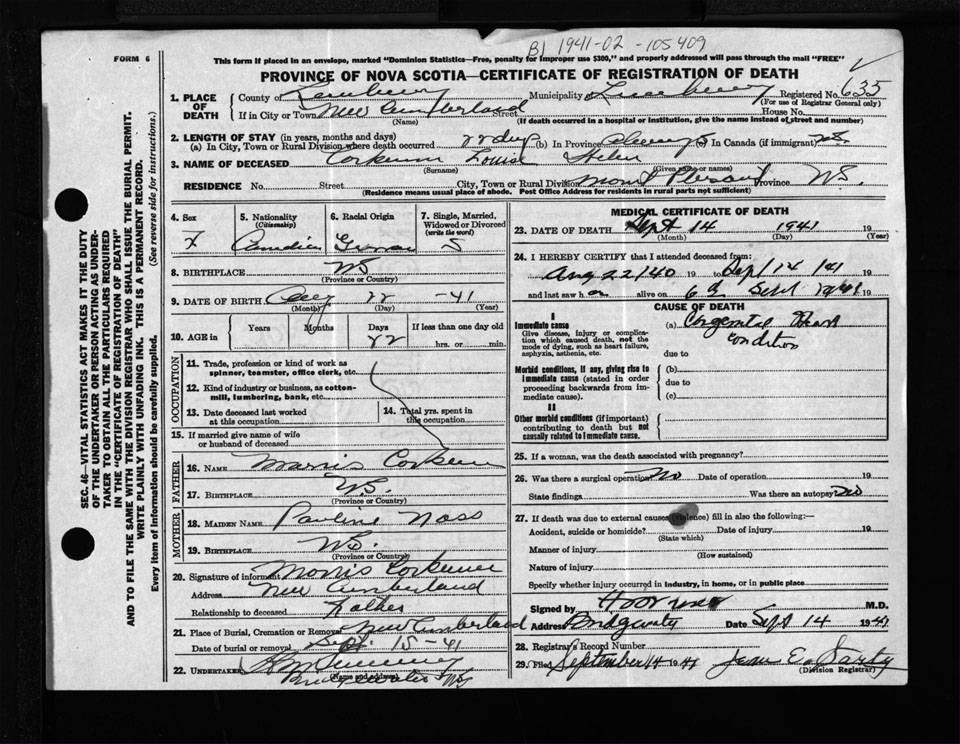 BJ 1941-02-105409
FORM 6
This form if placed in an envelope, marked "Dominion Statistics—Free, penalty for improper use $300," and properly addressed will pass through the mail "FREE"
PROVINCE OF NOVA SCOTIA—CERTIFICATE OF REGISTRATION OF DEATH
1. PLACE OF DEATH County of Lunenburg Municipality Lunenburg Registered No. 635
(For use of Registrar General only)
If in City or Town New Cumberland Street House No.
(Name) (If death occurred in a hospital or institution, give the name instead of street and number)
2. LENGTH OF STAY (in years, months and days)
(a) In City, Town or Rural Division where death occurred 22 days (b) In Province always (c) In Canada (if immigrant)
3. NAME OF DECEASED Corkum Louise Helen
(Surname) (Given name or names)
RESIDENCE No. Street City, Town or Rural Division Mount Pleasant Province N.S.
(Residence means usual place of abode. Post Office Address for residents in rural parts not sufficient)
4. Sex 5. Nationality 6. Racial Origin 7. Single, Married, Widowed or Divorced
(Citizenship) (write the word)
F Canadian German S
8. BIRTHPLACE NS
(Province or Country)
9. DATE OF BIRTH Aug 22 -41
(Month) (Day) (Year)
10. AGE in Years Months Days If less than one day old
22 hrs. or min.
OCCUPATION
11. Trade, profession or kind of work as spinner, teamster, office clerk, etc.
12. Kind of industry or business, as cotton-mill, lumbering, bank, etc.
13. Date deceased last worked at this occupation 14. Total yrs. spent in this occupation
15. If married give name of wife or husband of deceased
FATHER
16. NAME Morris Corkum
17. BIRTHPLACE N.S.
(Province or Country)
MOTHER
18. MAIDEN NAME Pauline Nass
19. BIRTHPLACE NS
(Province or Country)
20. Signature of informant Morris Corkum
Address New Cumberland
Relationship to deceased Father
21. Place of Burial, Cremation or Removal New Cumberland
Date of burial or removal Sept 15-41
22. UNDERTAKER
(Name and address)
Bridgewater NS
MEDICAL CERTIFICATE OF DEATH
23. DATE OF DEATH Sept 14 1941 19
(Month) (Day) (Year)
24. I HEREBY CERTIFY that I attended deceased from:
Aug 22/40 19 to Sept 14/41 19
and last saw h er alive on Sept 1941 19
CAUSE OF DEATH
I
Immediate cause
Give disease, injury or complication which caused death, not the mode of dying, such as heart failure, asphyxia, asthenia, etc.
(a) Congenital Heart
Condition
due to
Morbid conditions, if any, giving rise to immediate cause (stated in order proceeding backwards from immediate cause).
(b)
due to
(c)
II
Other morbid conditions (if important) contributing to death but not causally related to immediate cause.
25. If a woman, was the death associated with pregnancy?
26. Was there a surgical operation no Date of operation 19
State findings Was there an autopsy no
27. If death was due to external causes (violence) fill in also the following:—
Accident, suicide or homicide? Date of injury 19
(State which)
Manner of injury
(How sustained)
Nature of injury
Specify whether injury occurred in industry, in home, or in public place
Signed by M.D.
Address Bridgewater Date Sept 14 1941
28. Registrar's Record Number
29. Filed September 14 1941
(Division Registrar)
SEC. 46—VITAL STATISTICS ACT MAKES IT THE DUTY
OF THE UNDERTAKER OR PERSON ACTING AS UNDER-
TAKER TO OBTAIN ALL THE PARTICULARS REQUIRED
IN THE "CERTIFICATE OF REGISTRATION OF DEATH"
AND TO FILE THE SAME WITH THE DIVISION REGISTRAR WHO SHALL ISSUE THE BURIAL PERMIT.
WRITE PLAINLY WITH UNFADING INK. THIS IS A PERMANENT RECORD.
Every item of information should be carefully supplied. (See reverse side for instructions.)